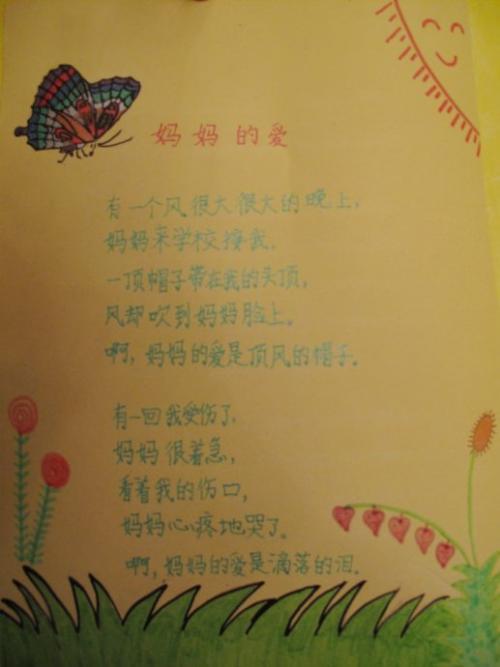 妈妈的爱
有一个风很大很大的晚上，
妈妈来学校接我，
一顶帽子带在我的头顶，
风却吹到妈妈脸上。
啊，妈妈的爱是顶风的帽子。
有一回我受伤了，
妈妈很着急，
看着我的伤口，
妈妈心疼地哭了。
啊，妈妈的爱是滴落的泪。